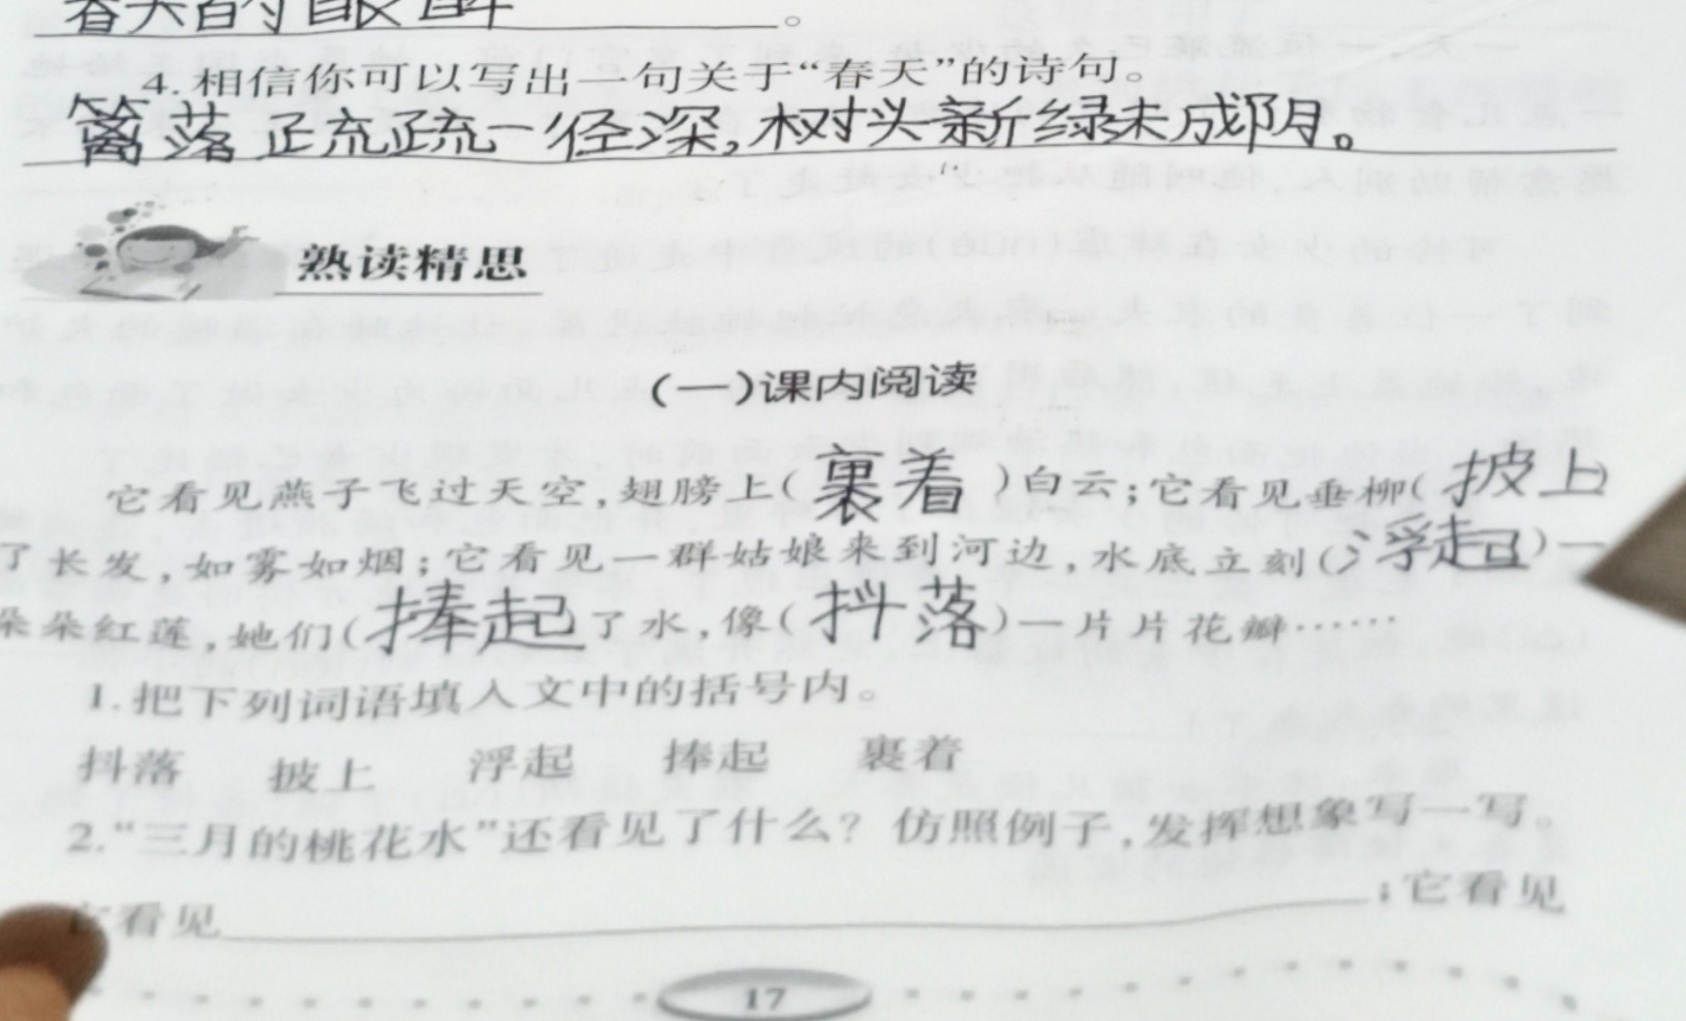 春天的
。
4.相信你可以写出一句关于“春天”的诗句。
篱落疏疏一径深,树头新绿未成阴。
熟读精思
(一)课内阅读
它看见燕子飞过天空,翅膀上(裹着)白云;它看见垂柳(披上)
了长发,如雾如烟;它看见一群姑娘来到河边,水底立刻(浮起)一
朵朵红莲,她们(捧起)了水,像(抖落)一片片花瓣……
1.把下列词语填入文中的括号内。
抖落 披上 浮起 捧起 裹着
2.“三月的桃花水”还看见了什么?仿照例子,发挥想象写一写。
它看见;它看见
17